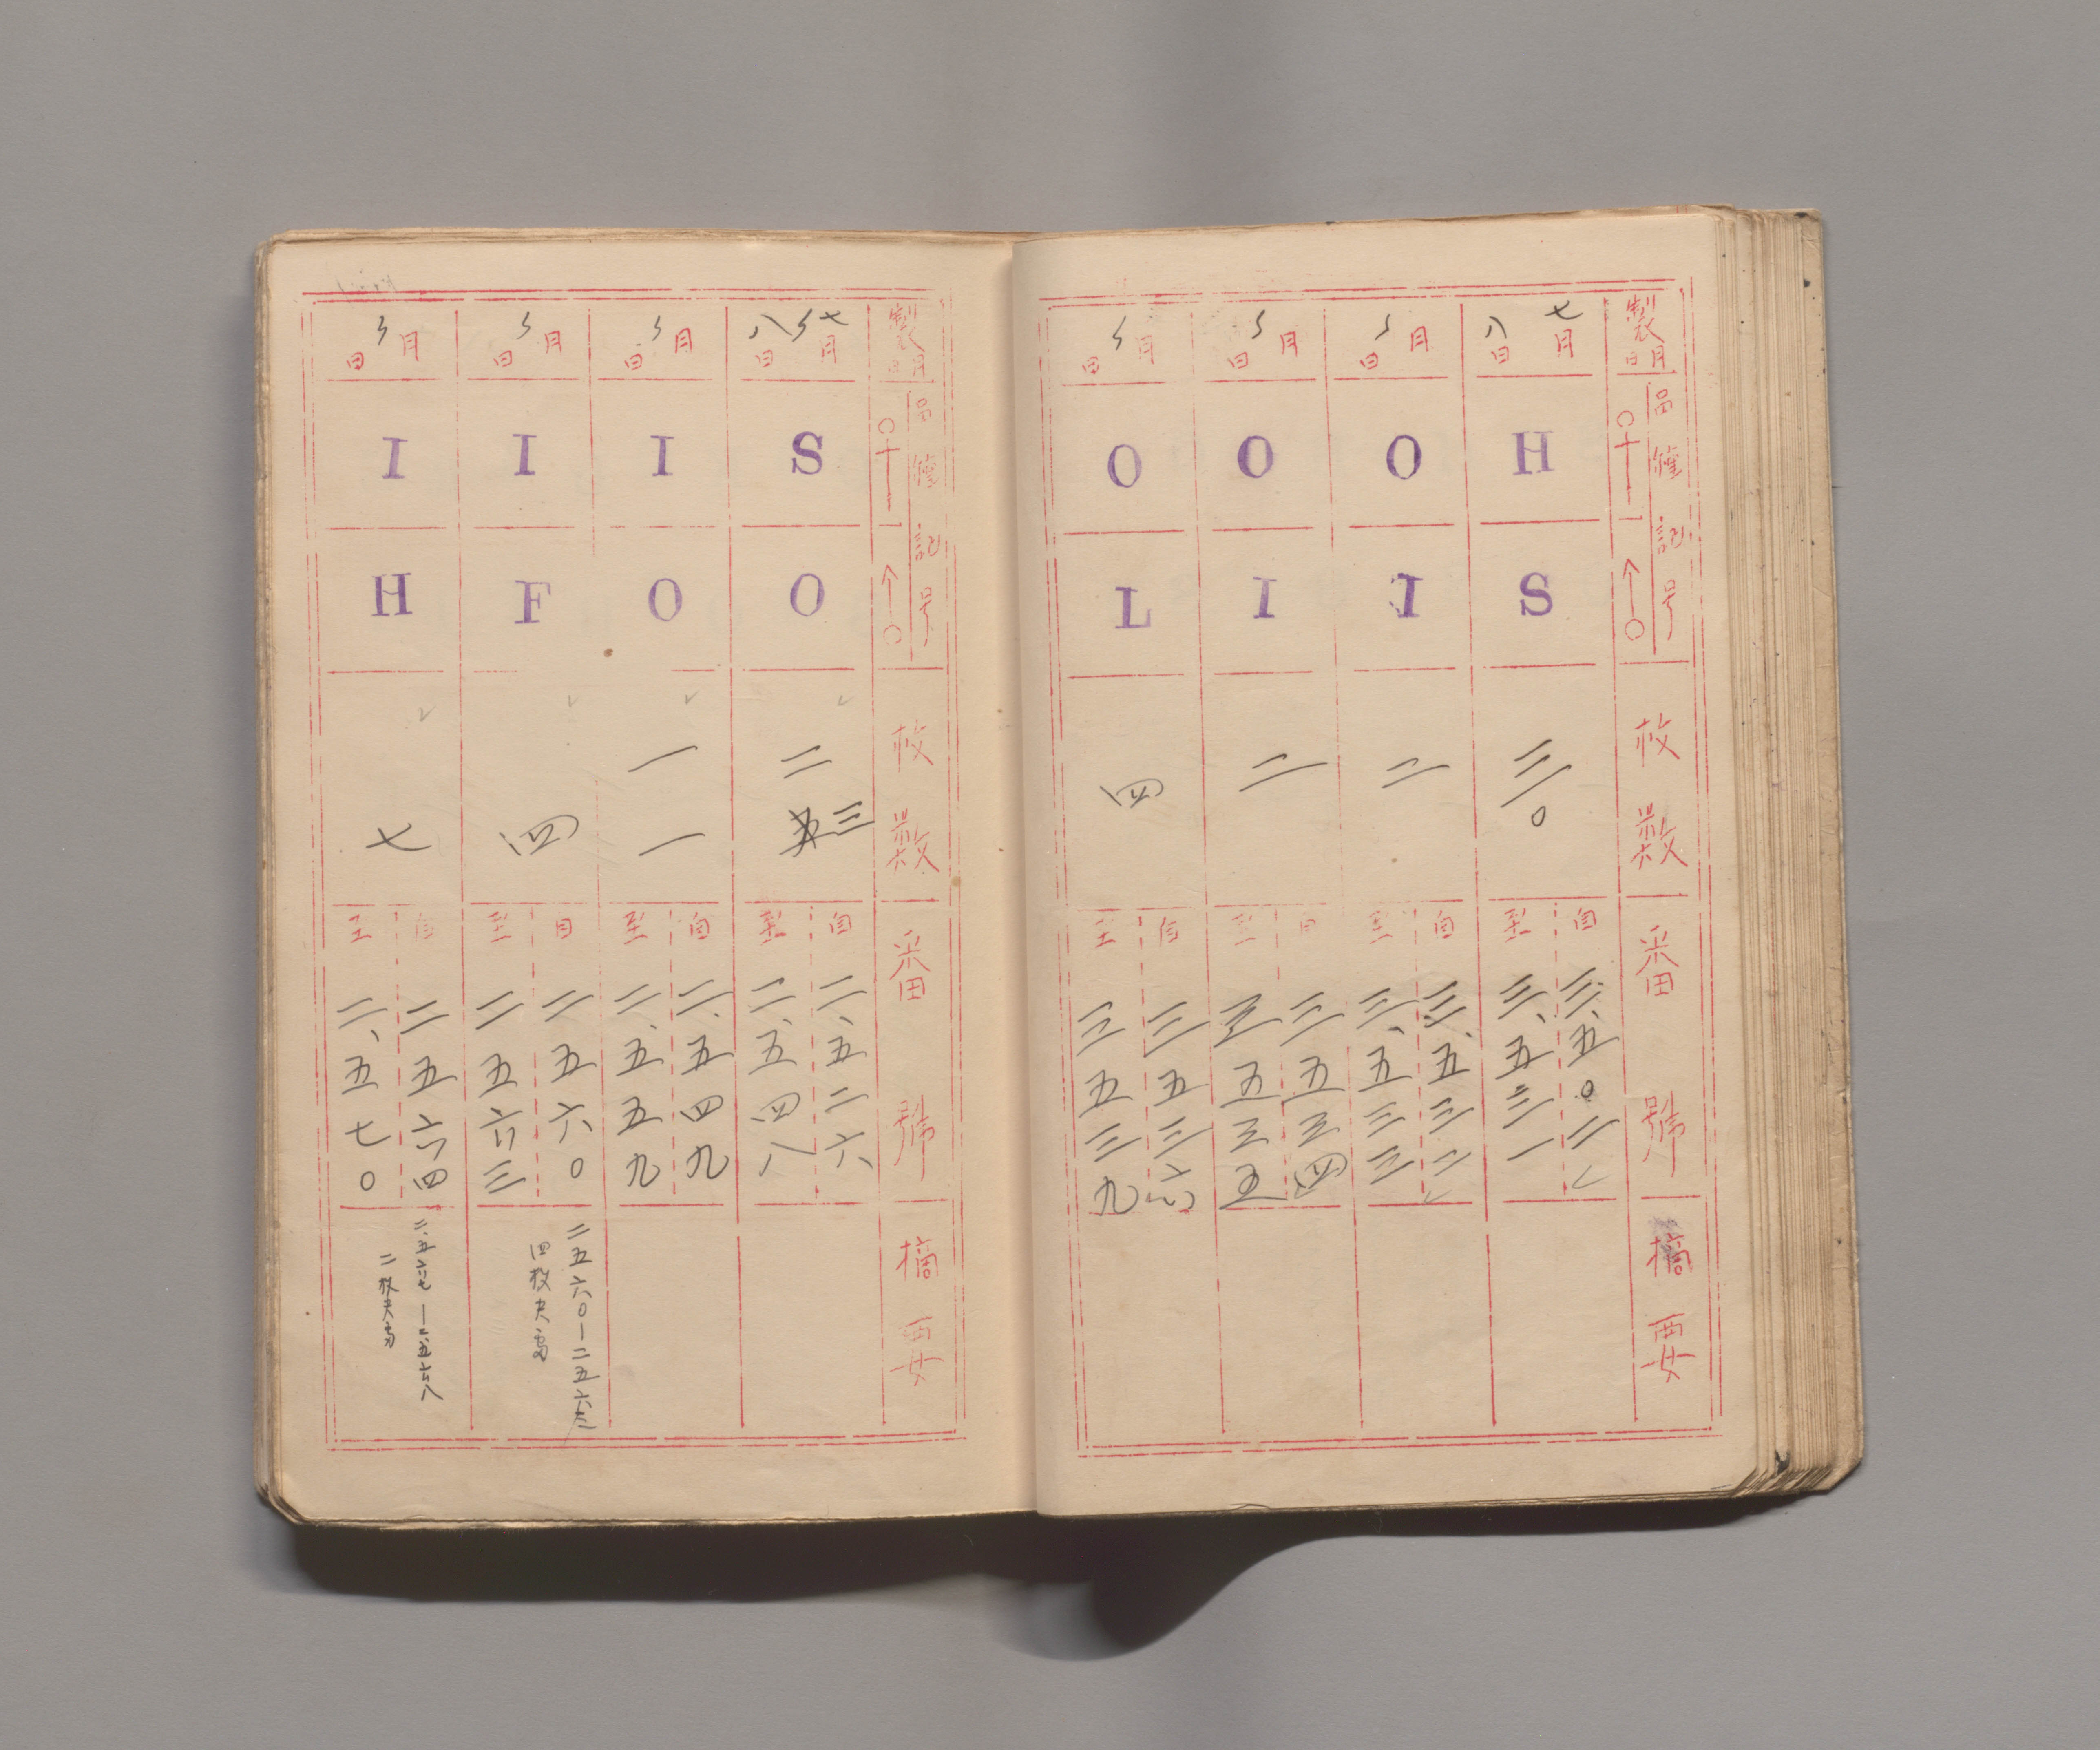 製月日
記号
枚数
番號
摘要
七月八日
H
S
三〇
自 三、五〇二
至 三、五三一
月日
O
I
二
自 三、五三二
至 三、五三三
月日
O
I
二
自 三五三四
至 三五三五
月日
O
L
四
自 三五三六
至 三五三九
製月日
記号
枚数
番號
摘要
七月八日
S
O
二三
自 二、五二六
至 二、五四八
月日
I
O
一一
自 二、五四九
至 二、五五九
月日
I
F
四
自 二五六〇
至 二五六三
二五六〇―二五六三
四枚
月日
I
H
七
自 二五六四
至 二、五七〇
二、五六七―二、五六八
二枚